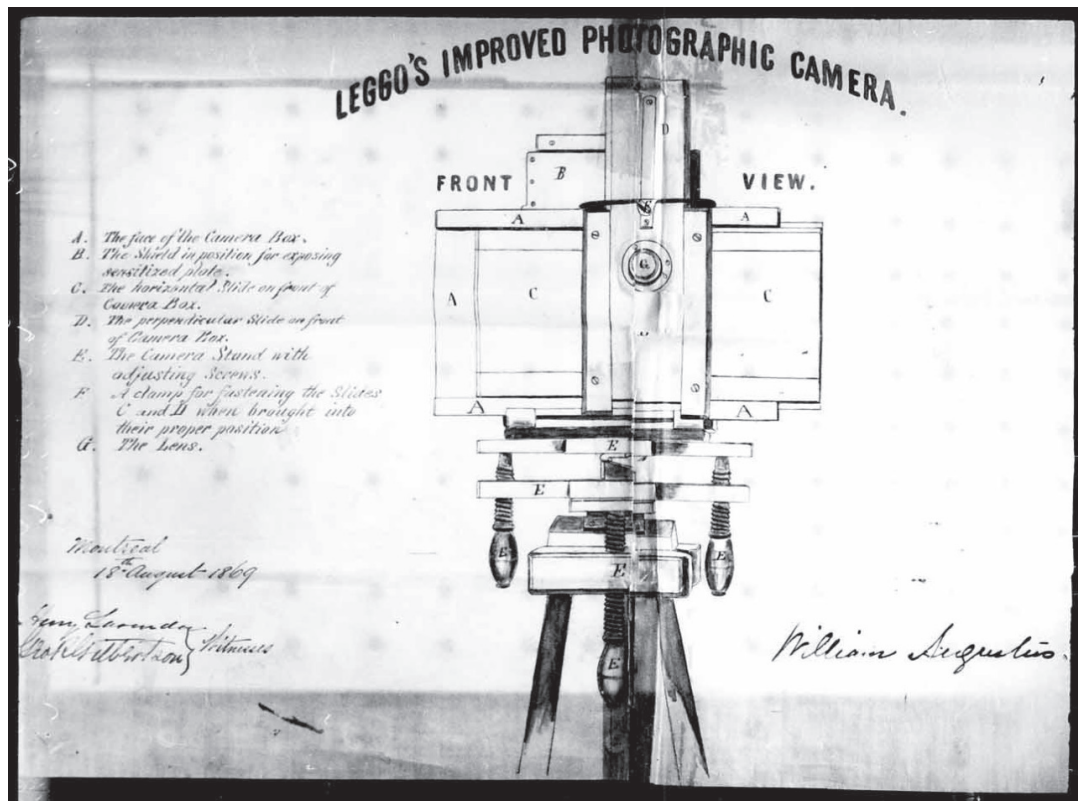 LEGGO'S IMPROVED PHOTOGRAPHIC CAMERA.
FRONT VIEW.
A. The face of the Camera Box.
B. The Shield in position for exposing
sensitized plate.
C. The horizontal Slide on front of
Camera Box.
D. The perpendicular Slide on front
of Camera Box.
E. The Camera Stand with
adjusting Screws.
F A clamp for fastening the Slides
C and D when brought into
their proper position
G. The Lens.
D
B
A
A
A
C
G
C
A
A
E
E
E
E
E
E
Montreal
18th August 1869
Witnesses
William Augustus